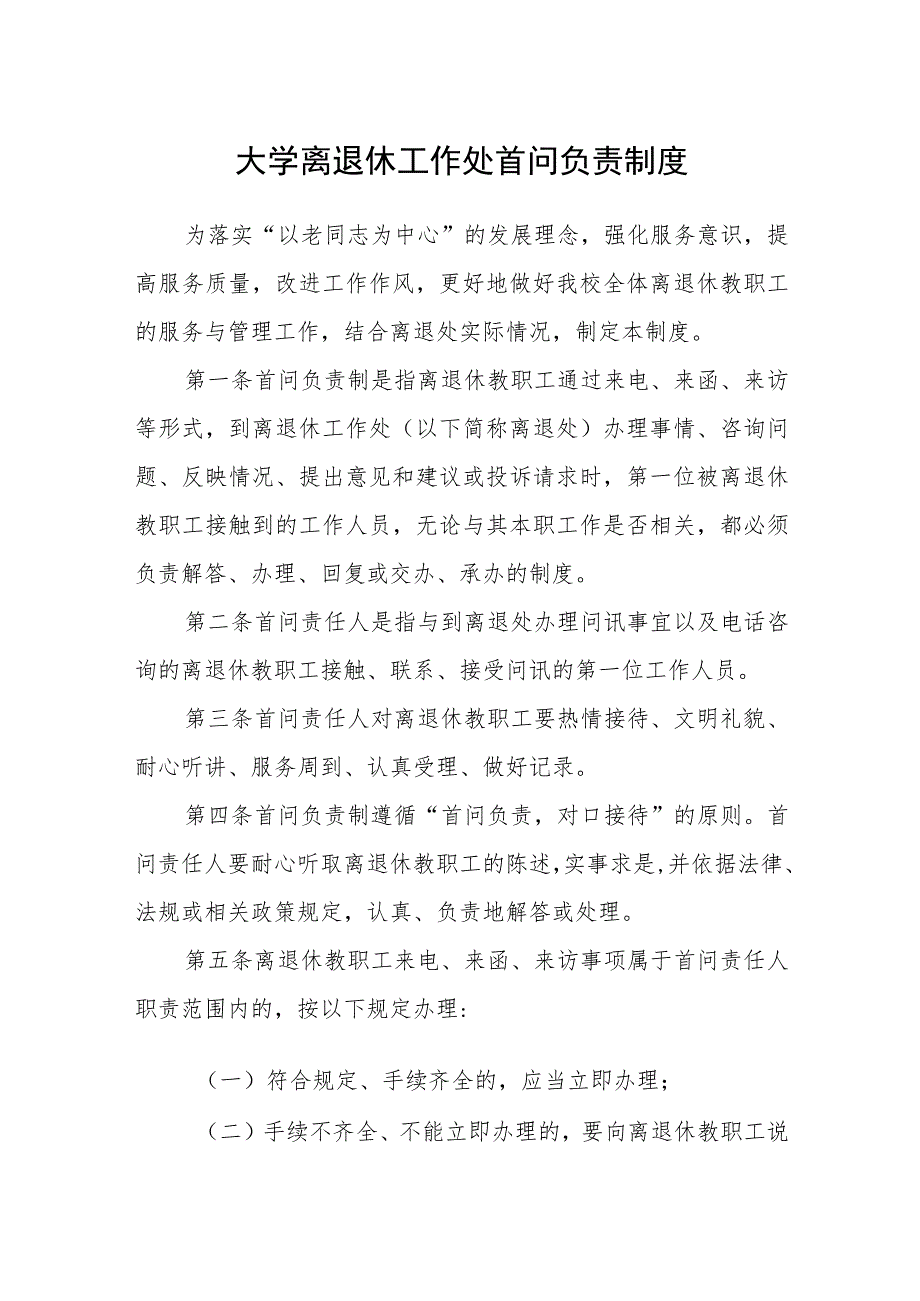 大学离退休工作处首问负责制度
为落实“以老同志为中心”的发展理念，强化服务意识，提
高服务质量，改进工作作风，更好地做好我校全体离退休教职工
的服务与管理工作，结合离退处实际情况，制定本制度。
第一条首问负责制是指离退休教职工通过来电、来函、来访
等形式，到离退休工作处（以下简称离退处）办理事情、咨询问
题、反映情况、提出意见和建议或投诉请求时，第一位被离退休
教职工接触到的工作人员，无论与其本职工作是否相关，都必须
负责解答、办理、回复或交办、承办的制度。
第二条首问责任人是指与到离退处办理问讯事宜以及电话咨
询的离退休教职工接触、联系、接受问讯的第一位工作人员。
第三条首问责任人对离退休教职工要热情接待、文明礼貌、
耐心听讲、服务周到、认真受理、做好记录。
第四条首问负责制遵循“首问负责，对口接待”的原则。首
问责任人要耐心听取离退休教职工的陈述,实事求是,并依据法律、
法规或相关政策规定，认真、负责地解答或处理。
第五条离退休教职工来电、来函、来访事项属于首问责任人
职责范围内的，按以下规定办理:
（一）符合规定、手续齐全的，应当立即办理；
（二）手续不齐全、不能立即办理的，要向离退休教职工说